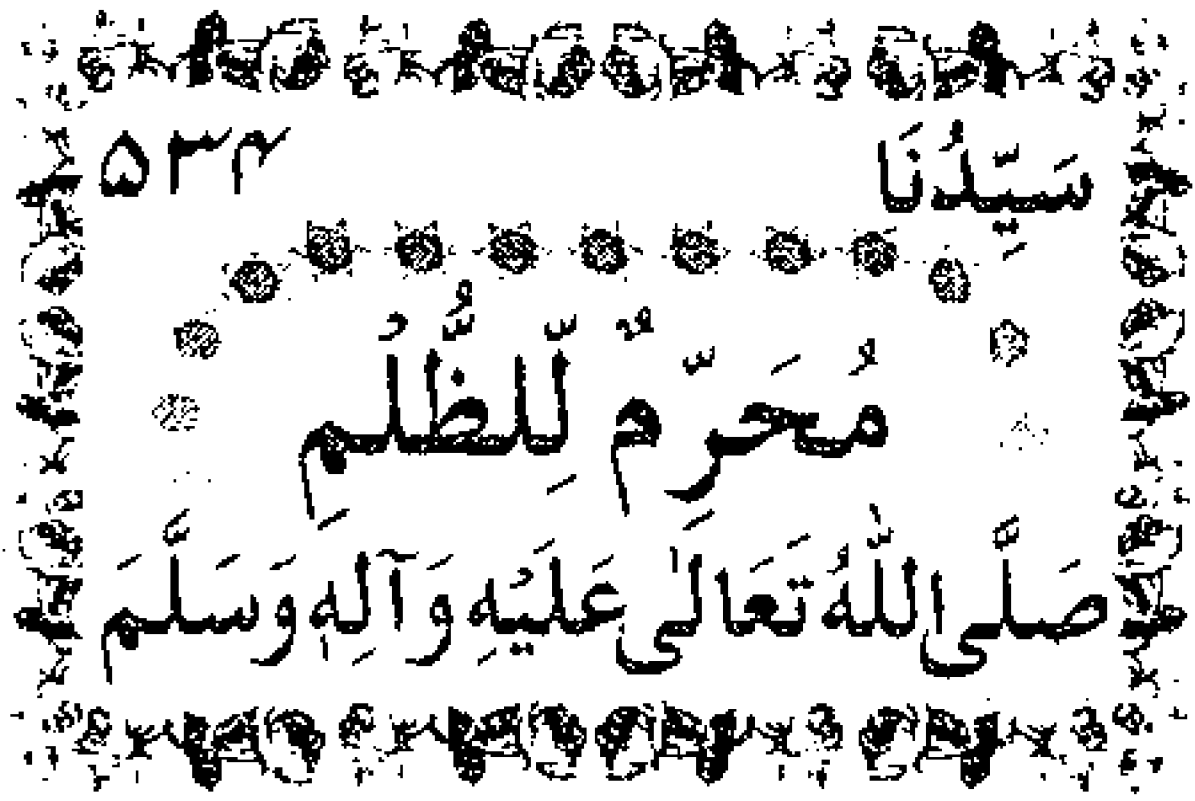 سَيِّدُنَا ۵۳۴
مُحَرِّمٌ لِّلظُّلْمِ
صَلَّى اللّٰهُ تَعَالٰى عَلَيْهِ وَآلِهٖ وَسَلَّمَ